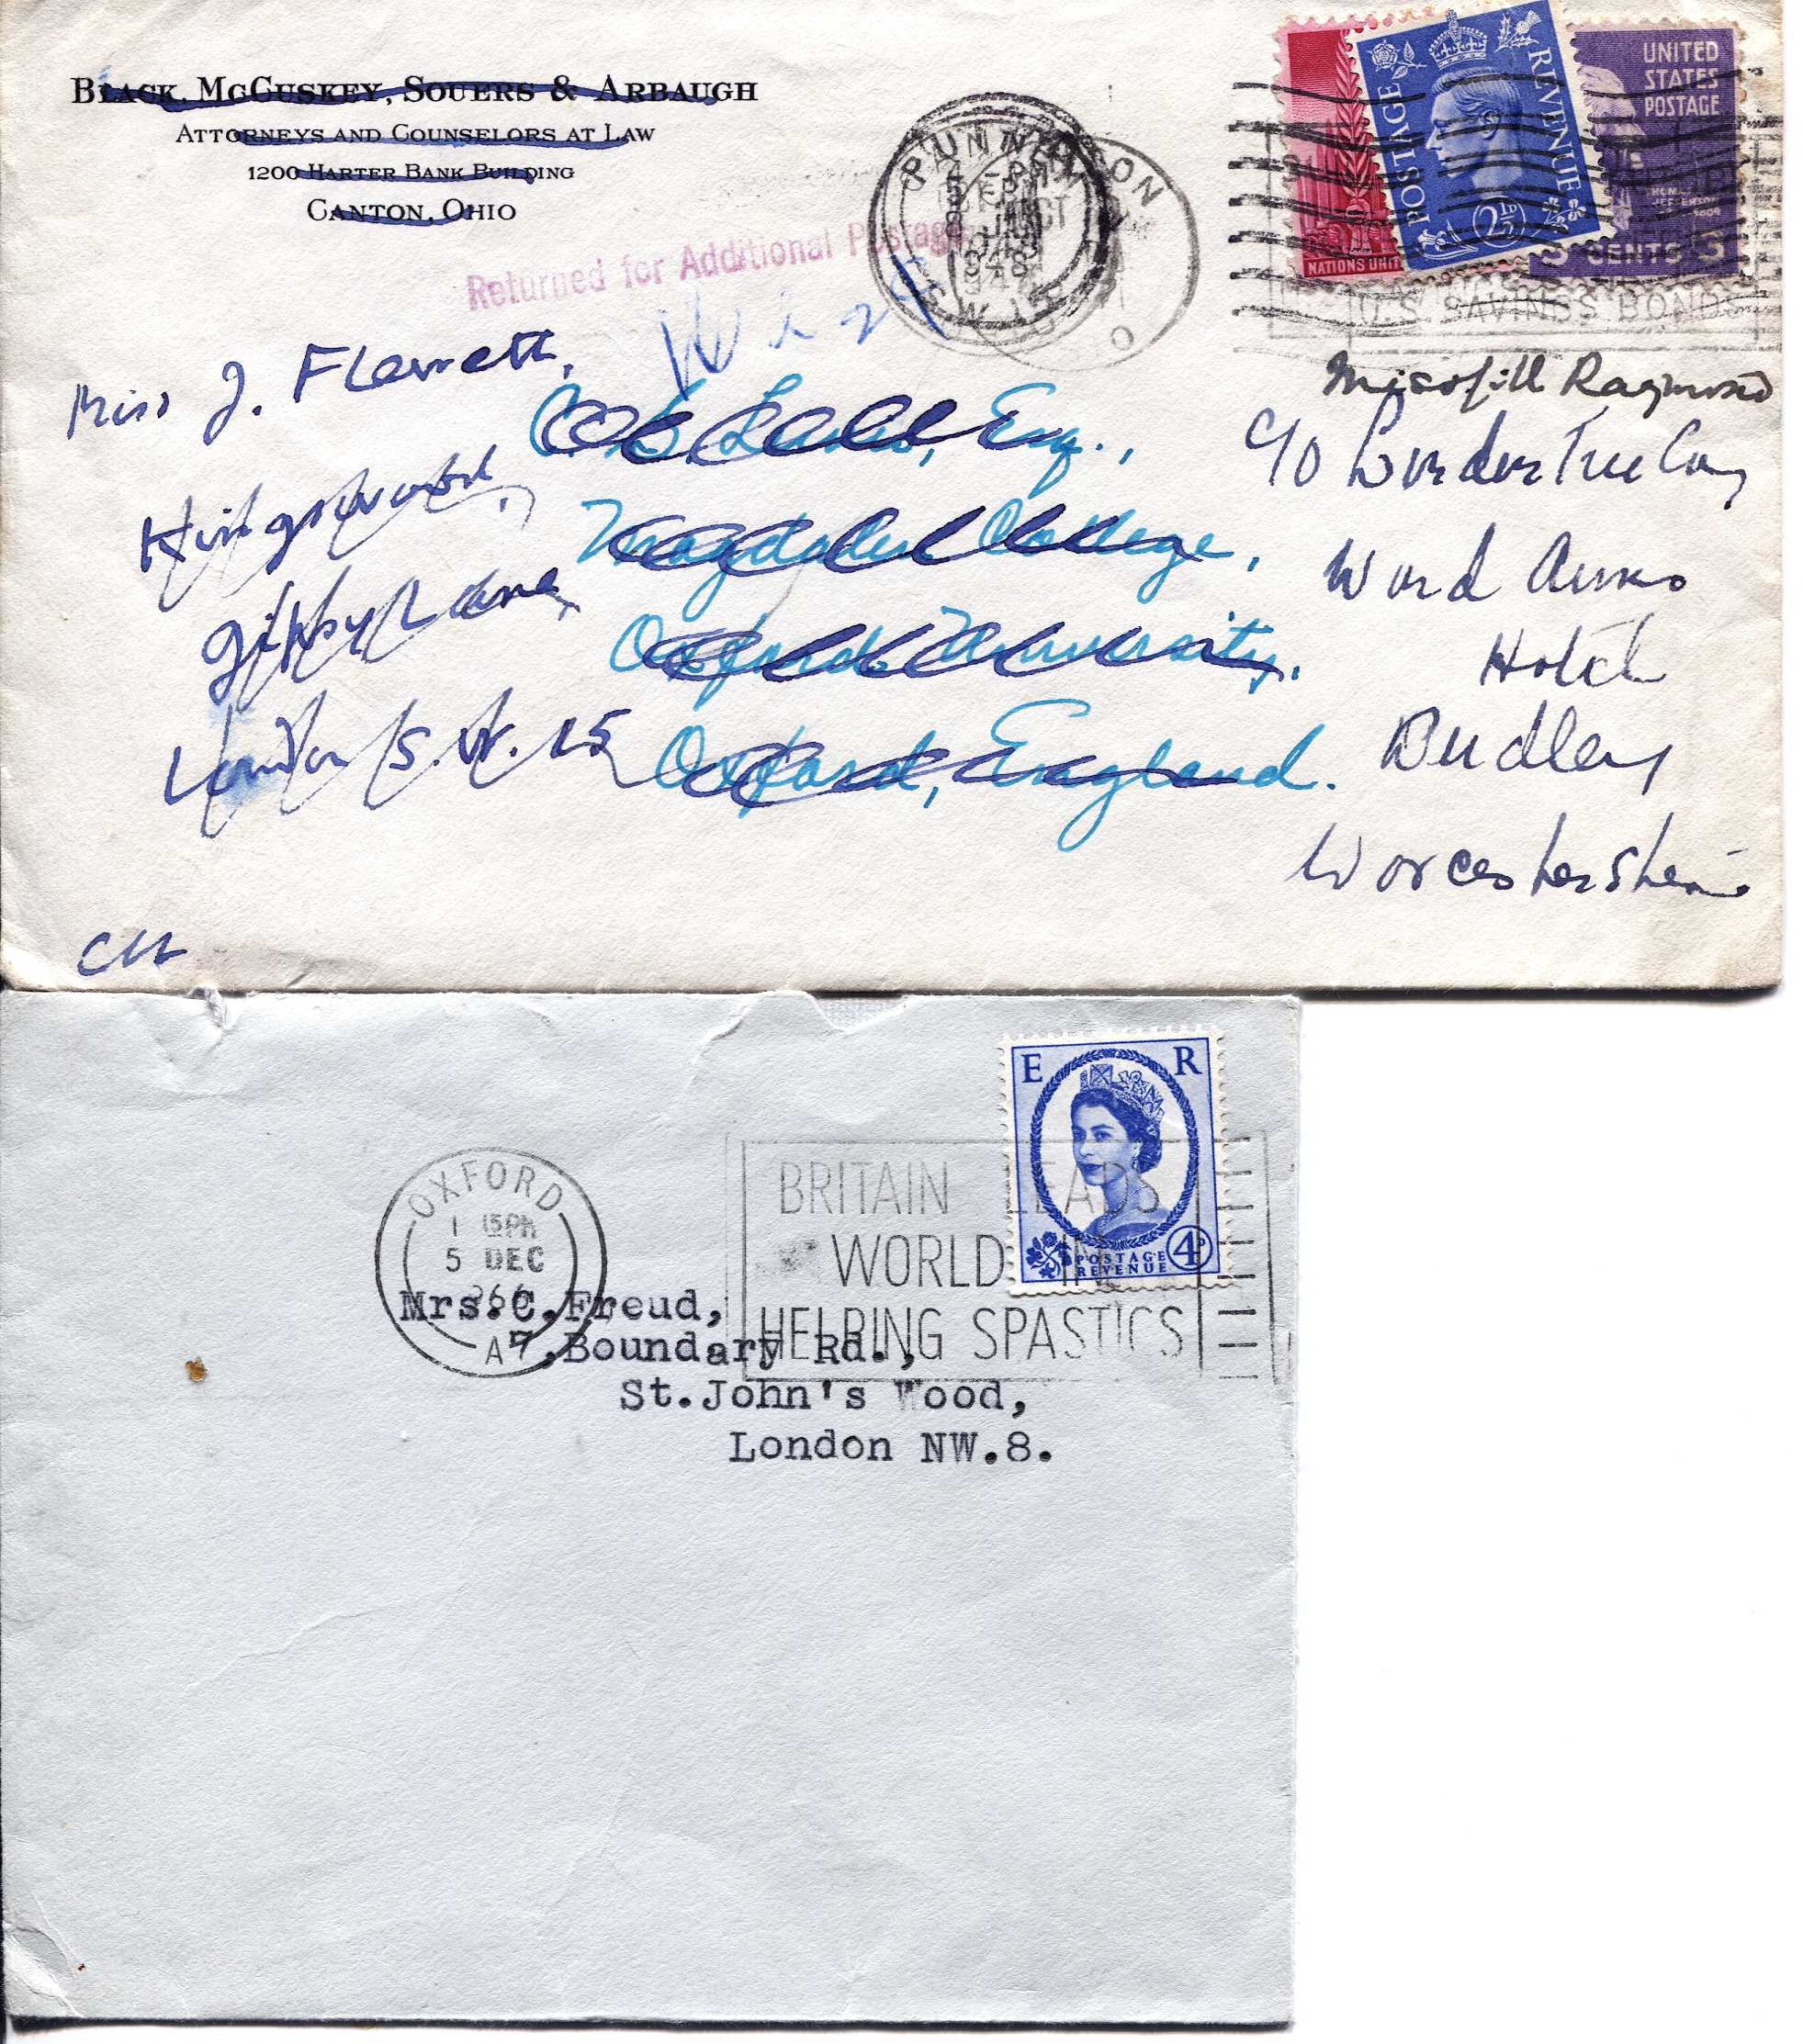 BLACK, MCCUSKEY, SOUERS & ARBAUGH
ATTORNEYS AND COUNSELORS AT LAW
1200 HARTER BANK BUILDING
CANTON, OHIO
Returned for Additional Postage
POSTAGE REVENUE
2½D
UNITED
STATES
POSTAGE
THOMAS
JEFFERSON
3 CENTS 3
NATIONS UNIT
U.S. SAVINGS BONDS
JUN
Miss J. Flewett,
Kingswood,
Gipsy Lane,
London S.W. 15
C. S. Lewis, Esq.,
Magdalen College,
Oxford University,
Oxford, England.
Miss Jill Raymond
c/o London Tree Coy
Ward Arms
Hotel
Dudley
Worcestershire
E R
POSTAGE
REVENUE
4D
OXFORD
1 15PM
5 DEC
966
A
BRITAIN LEADS
WORLD IN
HELPING SPASTICS
Mrs.C.Freud,
7,Boundary Rd.,
St.John's Wood,
London NW.8.